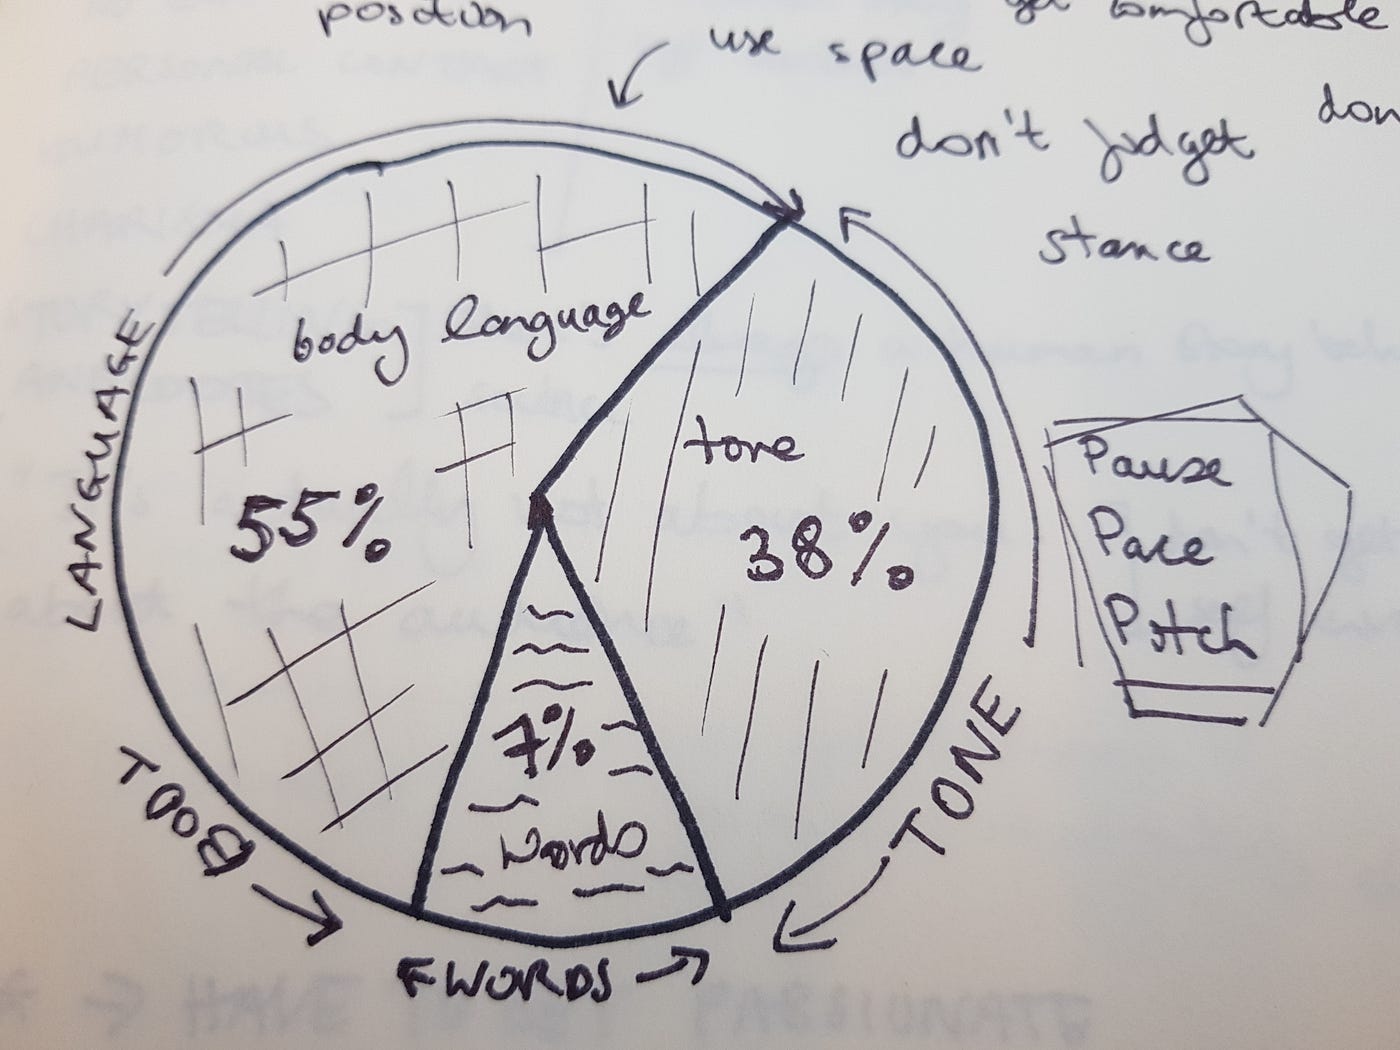 position
get comfortable
use space
don't judget
don
stance
body language
55%
tone
38%
7%
Words
LANGUAGE
BODY
WORDS
TONE
Pause
Pace
Pitch